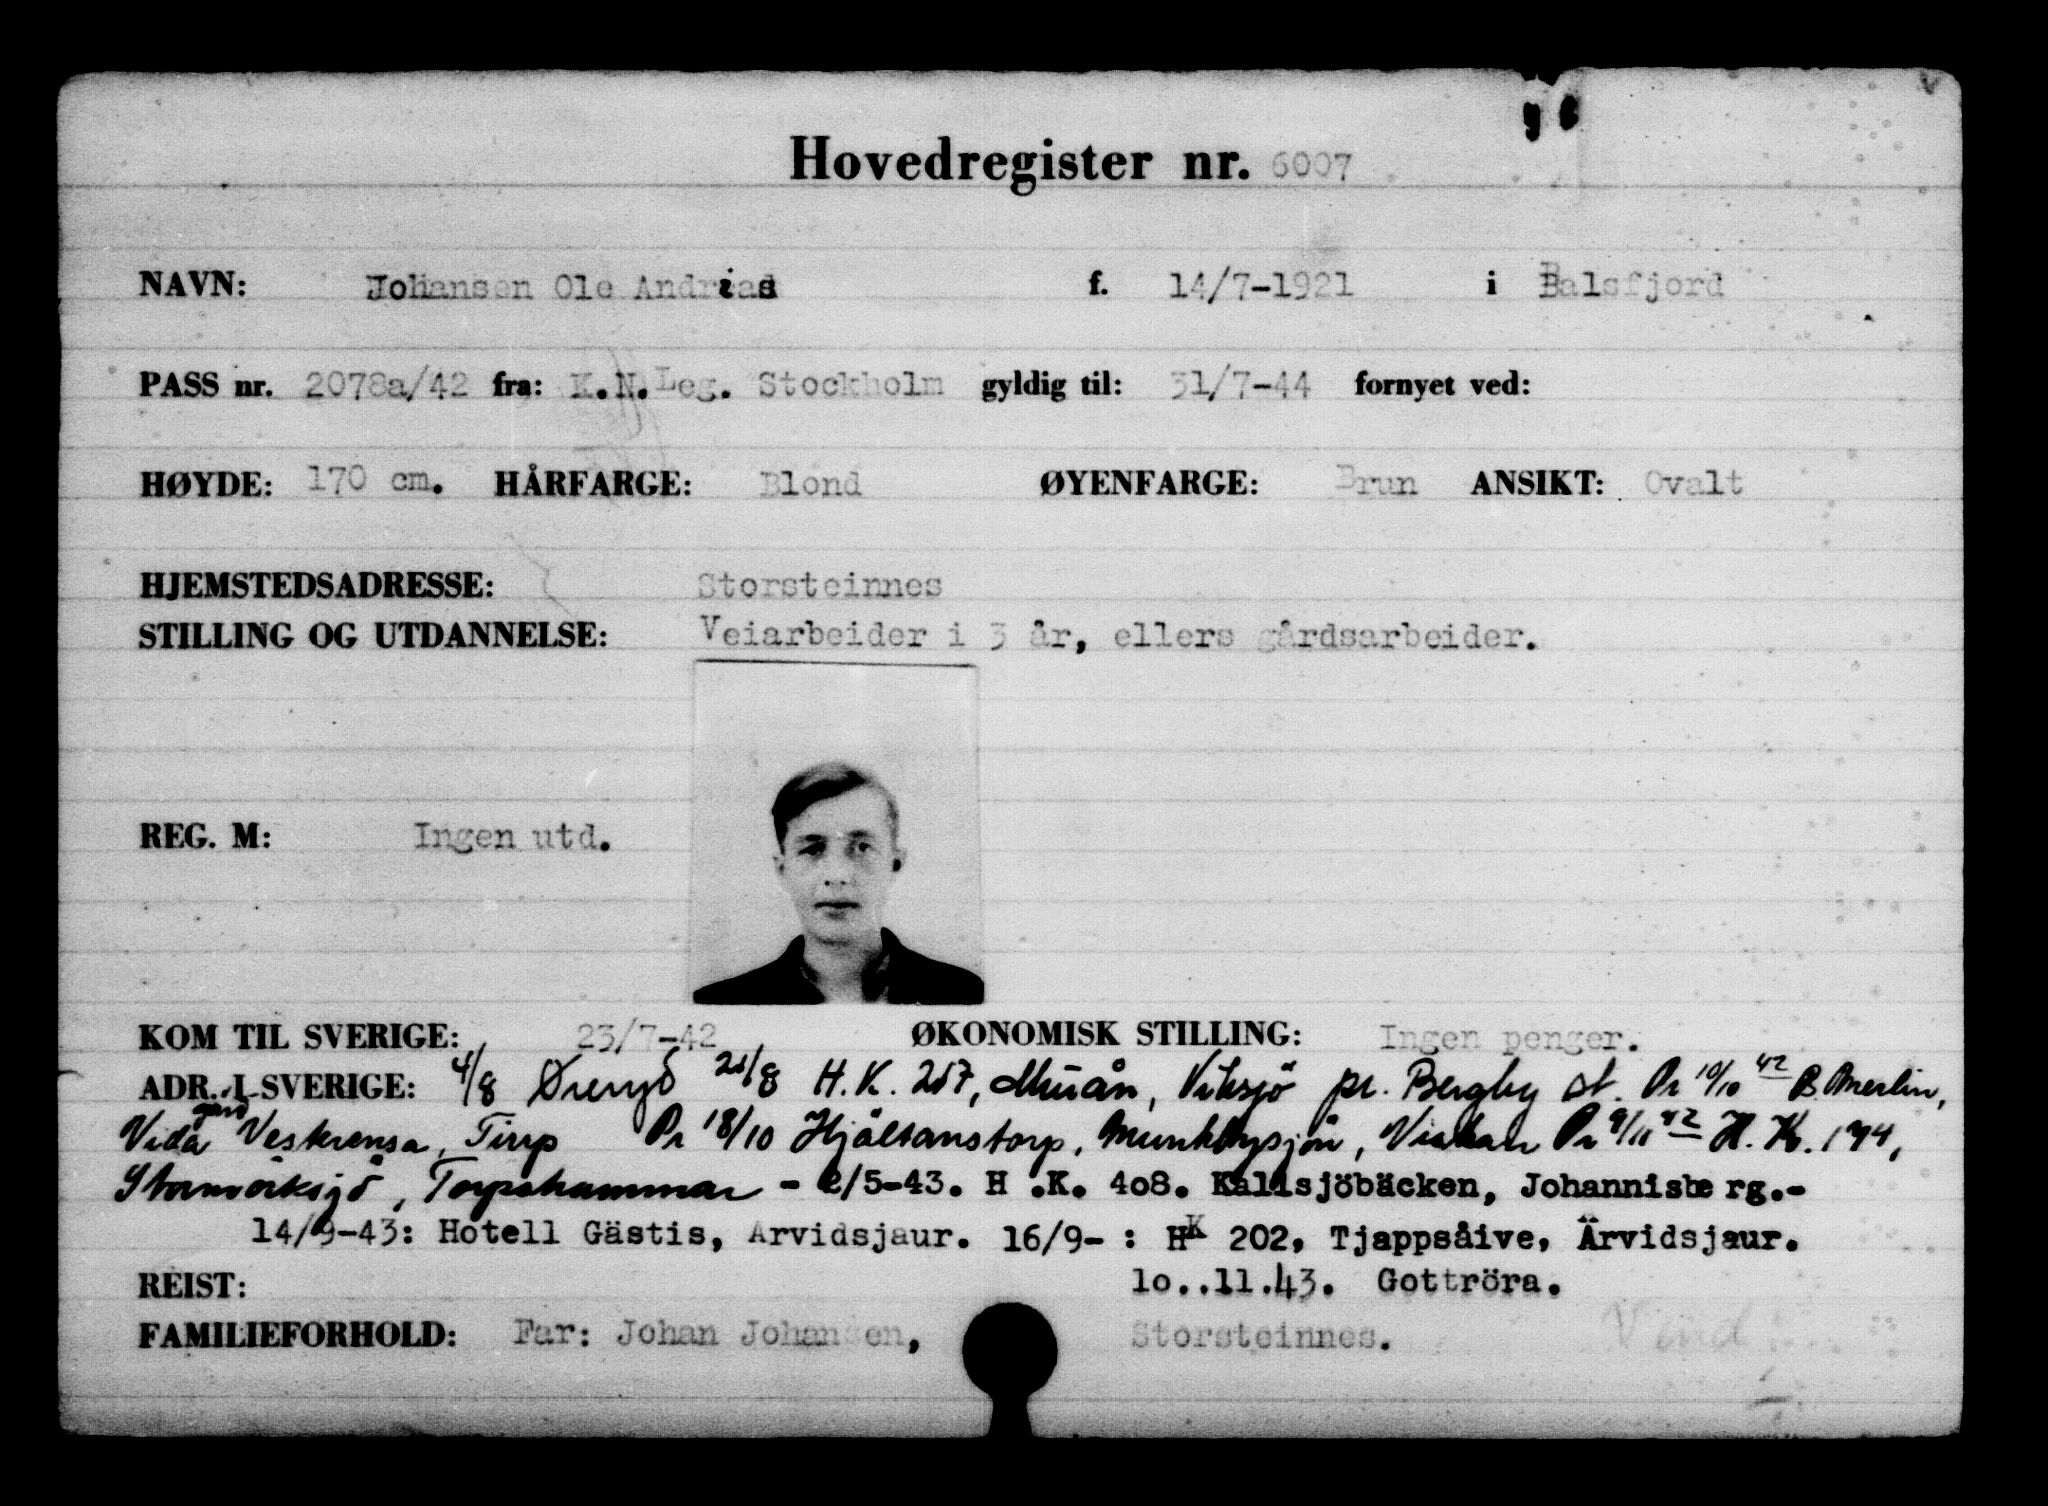 Hovedregister nr. 6007
NAVN: Johansen Ole Andreas f. 14/7-1921 i Balsfjord
PASS nr. 2078a/42 fra: K.N.Leg. Stockholm gyldig til: 31/7-44 fornyet ved:
HØYDE: 170 cm. HÅRFARGE: Blond ØYENFARGE: Brun ANSIKT: Ovalt
HJEMSTEDSADRESSE: Storsteinnes
STILLING OG UTDANNELSE: Veiarbeider i 3 år, ellers gårdsarbeider.
REG. M: Ingen utd.
KOM TIL SVERIGE: 23/7-42 ØKONOMISK STILLING: Ingen penger.
ADR. I SVERIGE: 4/8 Øreryd H.K. 257, Viksjö pr. Bergby st. Pr 10/10 42 B. Merlin,
Vida gård Veskrensa, Tirup Pr 18/10 Hjältanstorp, Munkbysjön, Viskan Pr 9/11 42 H.K. 174,
Stormörksjö, Torpshammar - 2/5-43. H.K. 4o8. Kallsjöbäcken, Johannisberg.-
14/9-43: Hotell Gästis, Arvidsjaur. 16/9- : HK 202, Tjappsåive, Ärvidsjaur.
REIST: lo..11.43. Gottröra.
FAMILIEFORHOLD: Far: Johan Johansen, Storsteinnes. Vend!